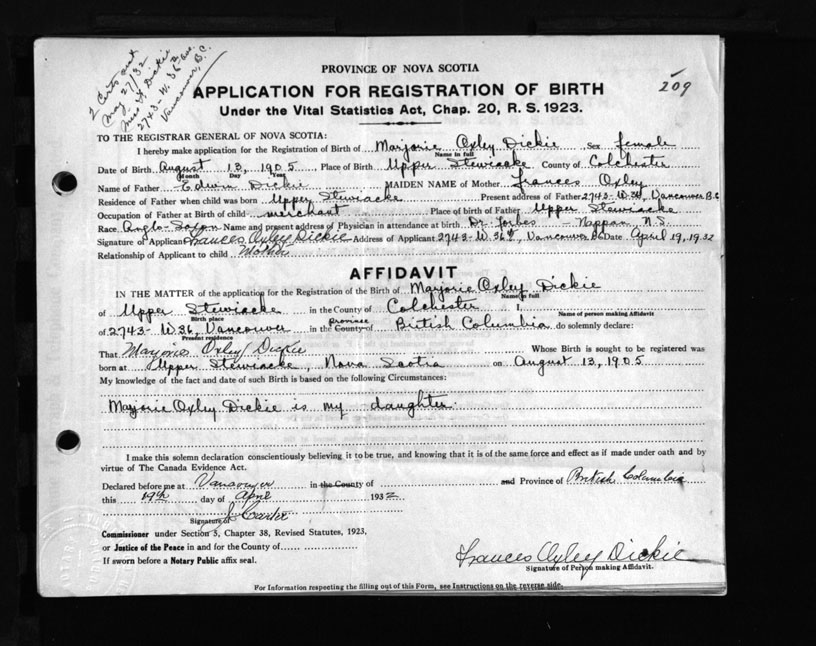 2 Certs out
May 27/32
Miss H. Dickie
2743-W. 36th Ave.
Vancouver, B.C.
209
PROVINCE OF NOVA SCOTIA
APPLICATION FOR REGISTRATION OF BIRTH
Under the Vital Statistics Act, Chap. 20, R. S. 1923.
TO THE REGISTRAR GENERAL OF NOVA SCOTIA:
I hereby make application for the Registration of Birth of Marjorie Oxley Dickie Sex female
Name in full
Date of Birth August 13, 1905 Place of Birth Upper Stewiacke County of Colchester
Month Day Year
Name of Father Edwin Dickie MAIDEN NAME of Mother Frances Oxley
Residence of Father when child was born Upper Stewiacke Present address of Father 2743-W. 36, Vancouver B.C
Occupation of Father at Birth of child merchant Place of birth of Father Upper Stewiacke
Race Anglo-Saxon Name and present address of Physician in attendance at birth Dr. Forbes - Nappan N.S.
Signature of Applicant Frances Oxley Dickie Address of Applicant 2743-W. 36th, Vancouver BC Date April 19, 1932
Relationship of Applicant to child Mother
AFFIDAVIT
IN THE MATTER of the application for the Registration of the Birth of Marjorie Oxley Dickie
Name in full
of Upper Stewiacke in the County of Colchester I,
Birth place Name of person making Affidavit
Province
of 2743- W 36, Vancouver in the County of British Columbia do solemnly declare:
Present residence
That Marjorie Oxley Dickie Whose Birth is sought to be registered was
born at Upper Stewiacke, Nova Scotia on August 13, 1905
My knowledge of the fact and date of such Birth is based on the following Circumstances:
Marjorie Oxley Dickie is my daughter.
I make this solemn declaration conscientiously believing it to be true, and knowing that it is of the same force and effect as if made under oath and by
virtue of The Canada Evidence Act.
Declared before me at Vancouver in the County of and Province of British Columbia
this 19th day of April 1932
J Carter
Signature of
Commissioner under Section 5, Chapter 38, Revised Statutes, 1923,
or Justice of the Peace in and for the County of
If sworn before a Notary Public affix seal.
Frances Oxley Dickie
Signature of Person making Affidavit.
For Information respecting the filling out of this Form, see Instructions on the reverse side.